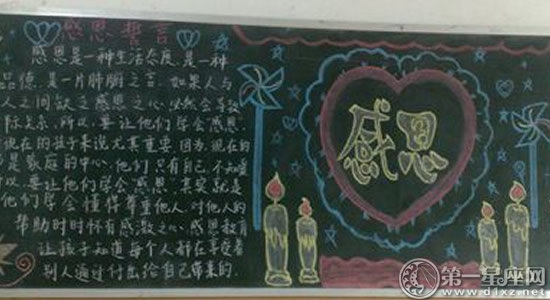 感恩誓言
感恩是一种生活态度,是一种
品德,是一片肺腑之言。如果人与
人之间缺乏感恩之心,必然会导致
际关系,所以,要让他们学会感恩
使现在的孩子来说尤其重要。因为,现在的
是家庭的中心,他们只有自己,不知爱
以,要让他们学会感恩,其实就是
他们学会懂得尊重他人。对他人的
帮助时时怀有感激之心,感恩教育
让孩子知道每个人都在享受着
别人通过付出给自己带来的.
感恩
第一星座网
www.d1xz.net